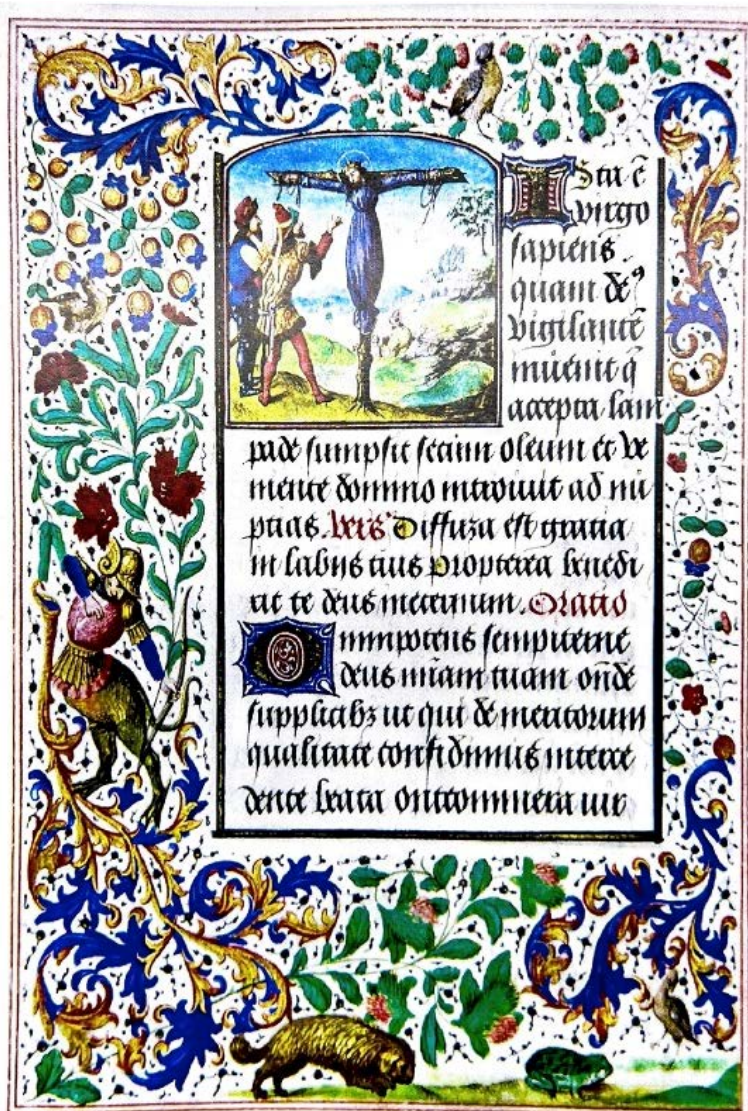 Ista ē
virgo
sapiens
quam dꝰ
vigilantē
inuenit q̄
accepta lam
pade sumpsit secum oleum et ve
niente domino introiuit ad nu
ptias. Vers' Diffusa est gratia
in labiis tuis Propterea benedi
xit te deus ineternum. Oratio
Omnipotens sempiterne
deus mīam tuam onde
supplicibꝫ ut qui de meritorum
qualitate confidimus interce
dente beata Ontcommera vir